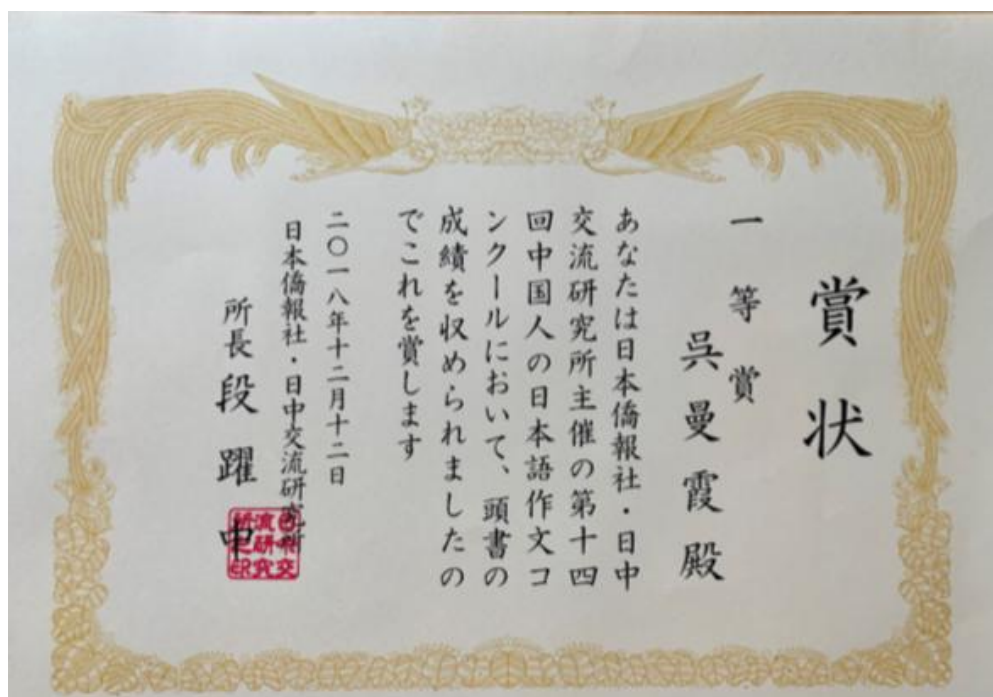 賞状
一等賞
呉曼霞殿
あなたは日本僑報社・日中
交流研究所主催の第十四
回中国人の日本語作文コ
ンクールにおいて、頭書の
成績を収められましたの
でこれを賞します
二〇一八年十二月十二日
日本僑報社・日中交流研究所
所長 段躍中